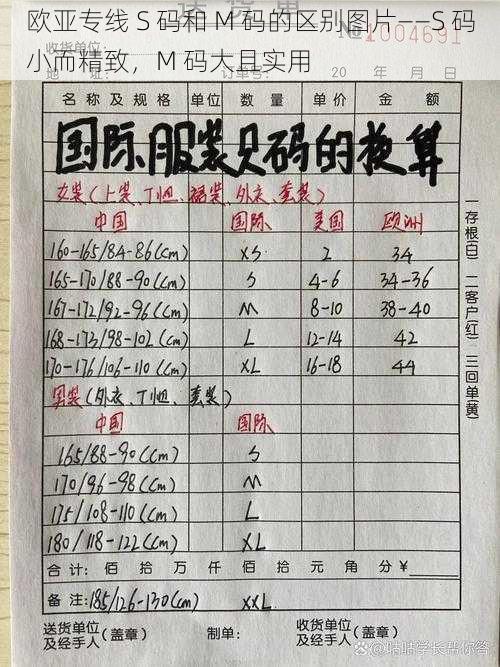 欧亚专线 S 码和 M 码的区别图片——S 码
小而精致，M 码大且实用
送货单
收货单位
No 1004691
地址： 订货单号： 20 年 月 日
名称及规格 单位 数量 单价 金额
国际服装尺码的换算
女装(上装、T恤、裙装、外衣、套装)
中国 国际 美国 欧洲
160-165/84-86(cm) XS 2 34
165-170/88-90(cm) S 4-6 34-36
167-172/92-96(cm) M 8-10 38-40
168-173/98-102(cm) L 12-14 42
170-176/106-110(cm) XL 16-18 44
男装(外衣、T恤、套装)
中国 国际
165/88-90(cm) S
170/96-98(cm) M
175/108-110(cm) L
180/118-122(cm) XL
合计： 佰 拾 万 仟 佰 拾 元 角 分￥
备注：185/126-130(cm) XXL
送货单位
及经手人(盖章) 制单： 收货单位
及经手人(盖章)
一存根(白) 二客户(红) 三回单(黄)
@咕咕学长帮你答